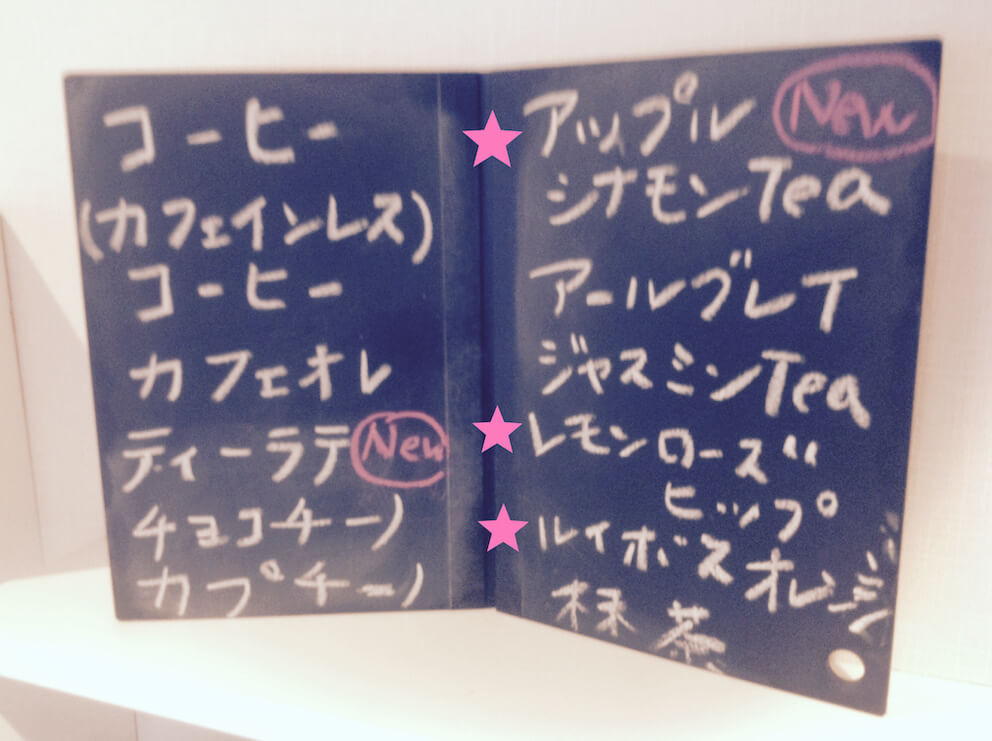 コーヒー
(カフェインレス)
コーヒー
カフェオレ
ティーラテ New
チョコチーノ
カプチーノ
★アップル New
シナモンTea
アールグレイ
ジャスミンTea
★レモンローズ
ヒップ
★ルイボスオレンジ
抹茶